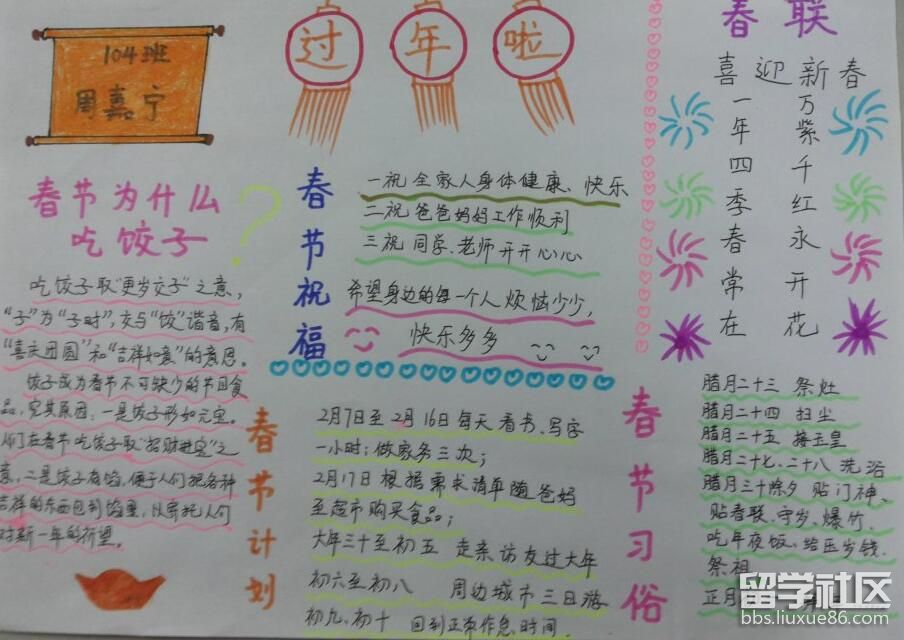 104班
周嘉宁
过年啦
春联
喜迎新春
万紫千红永开花
一年四季春常在
春节为什么
吃饺子?
吃饺子取“更岁交子”之意,
“子”为“子时”,交与“饺”谐音,有
“喜庆团圆”和“吉祥如意”的意思。
饺子成为春节不可缺少的节目食
品,究其原因:一是饺子形如元宝。
人们在春节吃饺子取“招财进宝”之
意,二是饺子有馅,便于人们把各种
吉祥的东西包到馅里,以寄托人们
对新一年的祈望。
春节祝福
一祝全家人身体健康、快乐
二祝爸爸妈妈工作顺利
三祝同学、老师开开心心
希望身边的每一个人烦恼少少,
快乐多多
春节计划
2月7日至2月16日每天看书、写字
一小时;做家务三次;
2月17日根据需求清单随爸妈
至超市购买食品;
大年三十至初五 走亲访友过大年
初六至初八 周边城市三日游
初九、初十 回到正常作息时间.
春节习俗
腊月二十三 祭灶
腊月二十四 扫尘
腊月二十五 接玉皇
腊月二十七、二十八 洗浴
腊月三十除夕 贴门神、
贴春联、守岁、爆竹、
吃年夜饭、给压岁钱、
祭祖
正月
留学社区
bbs.liuxue86.com